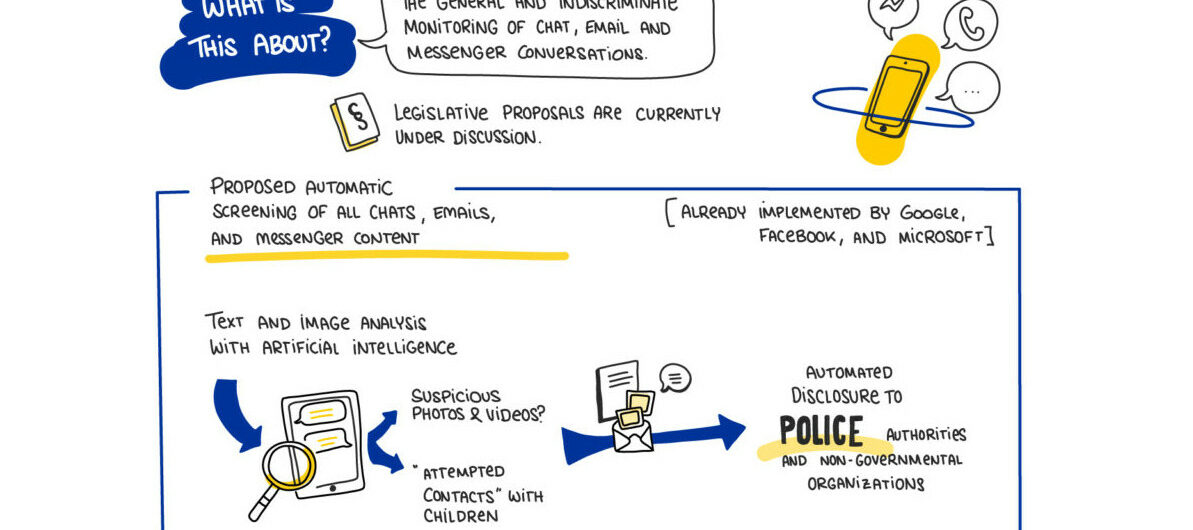 WHAT IS
THIS ABOUT?
THE GENERAL AND INDISCRIMINATE
MONITORING OF CHAT, EMAIL AND
MESSENGER CONVERSATIONS.
§
LEGISLATIVE PROPOSALS ARE CURRENTLY
UNDER DISCUSSION.
...
PROPOSED AUTOMATIC
SCREENING OF ALL CHATS, EMAILS,
AND MESSENGER CONTENT
[ALREADY IMPLEMENTED BY GOOGLE,
FACEBOOK, AND MICROSOFT]
TEXT AND IMAGE ANALYSIS
WITH ARTIFICIAL INTELLIGENCE
SUSPICIOUS
PHOTOS & VIDEOS?
"ATTEMPTED
CONTACTS" WITH
CHILDREN
AUTOMATED
DISCLOSURE TO
POLICE AUTHORITIES
AND NON-GOVERNMENTAL
ORGANIZATIONS